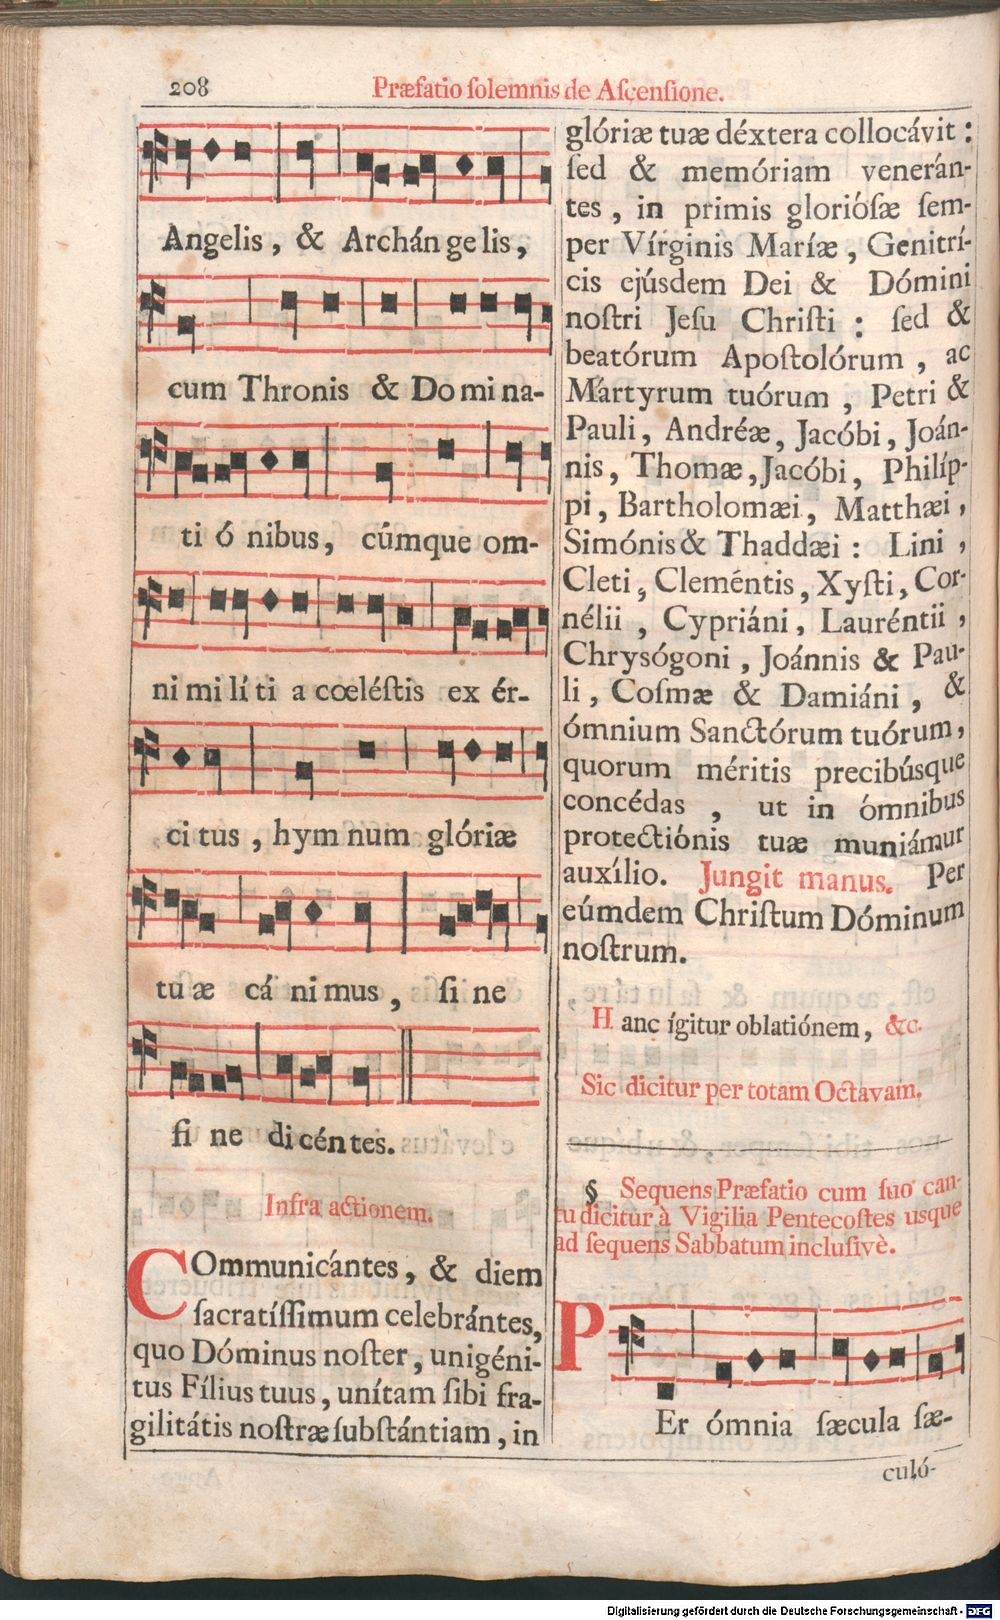 208
Præfatio ſolemnis de Aſcenſione.
Angelis, & Archán ge lis,
cum Thronis & Do mi na-
ti ó nibus, cúmque om-
ni mi lí ti a cœléſtis ex ér-
ci tus, hym num glóriæ
tu æ cá ni mus, ſi ne
ſi ne di céntes.
Infra actionem.
COmmunicántes, & diem
ſacratíſſimum celebrántes,
quo Dóminus noſter, unigéni-
tus Fílius tuus, unítam ſibi fra-
gilitátis noſtræ ſubſtántiam, in
glóriæ tuæ déxtera collocávit :
ſed & memóriam venerán-
tes, in primis glorióſæ ſem-
per Vírginis Maríæ, Genitrí-
cis ejúsdem Dei & Dómini
noſtri Jeſu Chriſti : ſed &
beatórum Apoſtolórum, ac
Martyrum tuórum, Petri &
Pauli, Andréæ, Jacóbi, Joán-
nis, Thomæ, Jacóbi, Philíp-
pi, Bartholomæi, Matthæi,
Simónis & Thaddæi : Lini,
Cleti, Cleméntis, Xyſti, Cor-
nélii, Cypriáni, Lauréntii,
Chrysógoni, Joánnis & Pau-
li, Coſmæ & Damiáni, &
ómnium Sanctórum tuórum,
quorum méritis precibúsque
concédas, ut in ómnibus
protectiónis tuæ muniámur
auxílio. Jungit manus. Per
eúmdem Chriſtum Dóminum
noſtrum.
Hanc ígitur oblatiónem, &c.
Sic dicitur per totam Octavam.
§ Sequens Præfatio cum ſuo can-
tu dicitur à Vigilia Pentecoſtes usque
ad ſequens Sabbatum incluſivè.
PEr ómnia ſæcula ſæ-
culó-
Digitalisierung gefördert durch die Deutsche Forschungsgemeinschaft - DFG